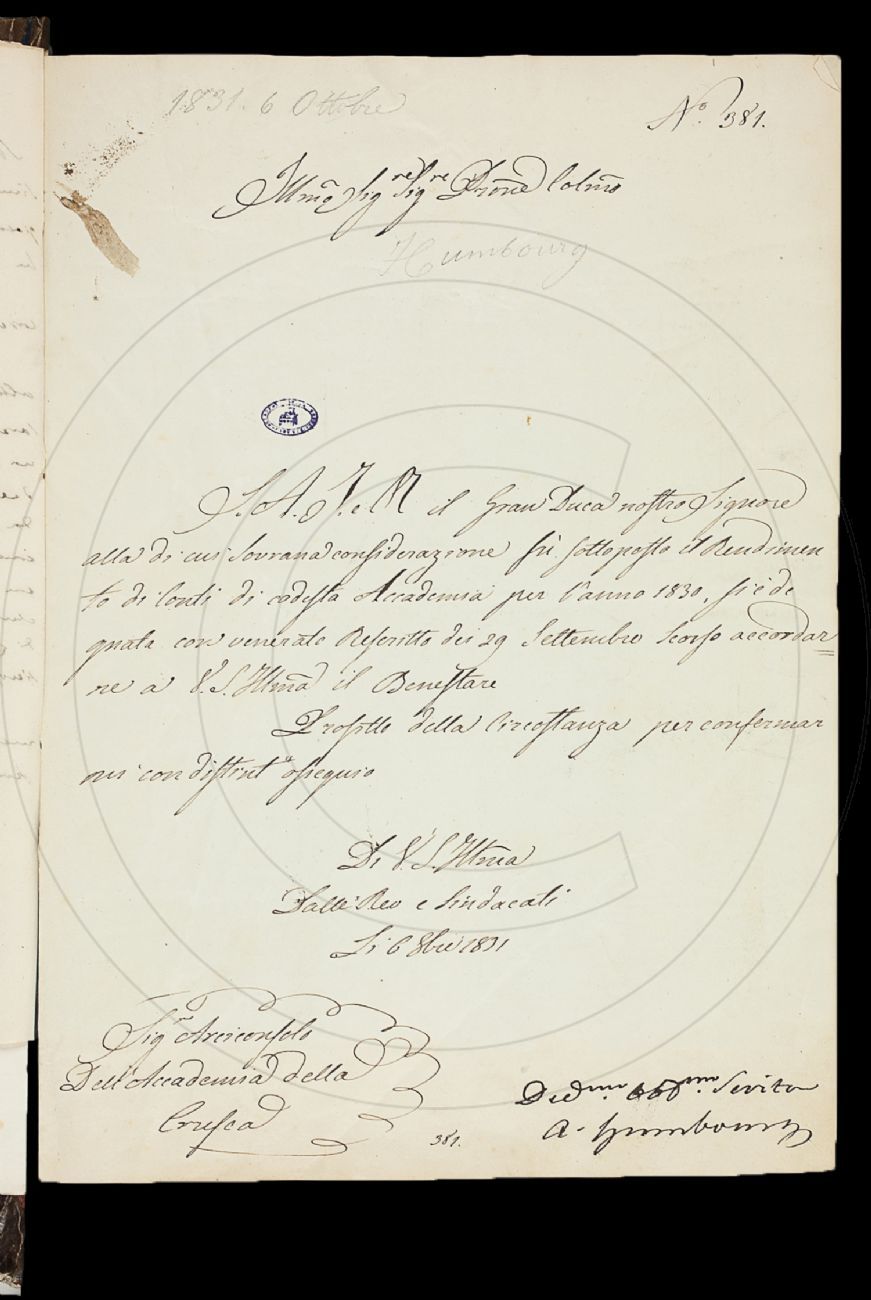 1831. 6 Ottobre
N.° 381.
Illmo Sig.re Sig.re Prone Colmo
Humbourg
S. A. I. e R. il Gran Duca nostro Signore
alla di cui Sovrana considerazione fù sottoposto il Rendimen
to di Conti di codesta Accademia per l'anno 1830, si è de
gnata con venerato Rescritto dei 29 Settembre scorso accordar=
ne a V. S. Illma il Benestare
Profitto della Circostanza per confermar
mi con distinto ossequio
Di V. S. Illma
Dalle Rev e Sindacati
Li 6 8bre 1831
Sig.r Arciconsolo
Dell'Accademia della
Crusca
381.
Devmo Obbmo Servitor
A. Humbourg